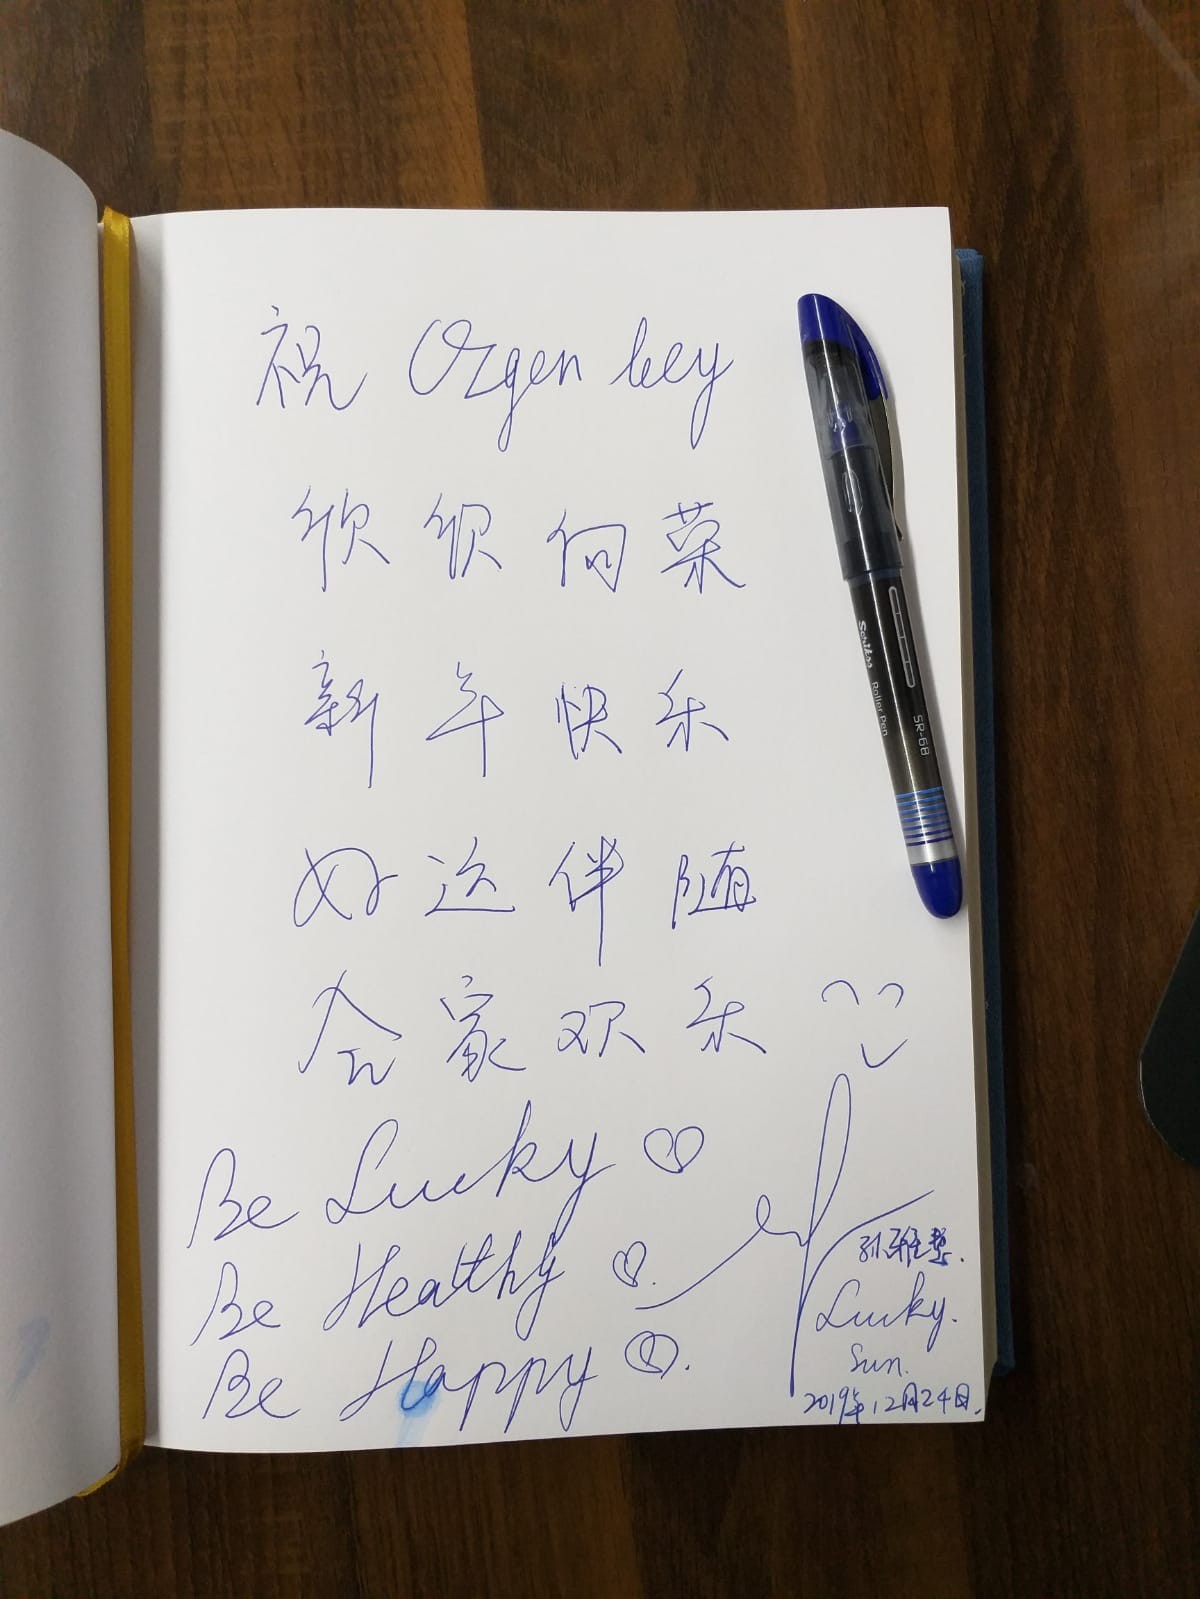 祝 Ozgen bey
欣欣向荣
新年快乐
好运伴随
合家欢乐
Be Lucky
Be Healthy
Be Happy
Lucky.
Sun.
2019年12月24日.
Scrikss Roller Pen
SR-68